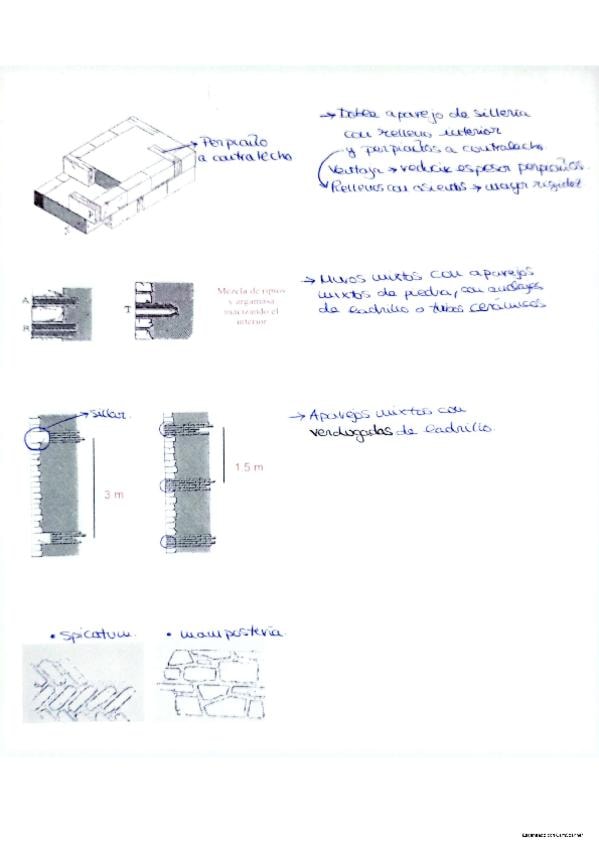 → Perpiaño
a contralecho
→ Doble aparejo de sillería
con relleno interior
y perpiaños a contralecho.
Ventaja → reducir espesor perpiaños.
Rellenos con asientos → mayor rigidez
A
B
T
Mezcla de ripios
y argamasa
macizando el
interior
→ Muros mixtos con aparejos
mixtos de piedra, con anclajes
de ladrillo o tubos cerámicos
→ sillar.
3 m
1.5 m
→ Aparejos mixtos con
verdugadas de ladrillo.
• spicatum.
• mampostería.